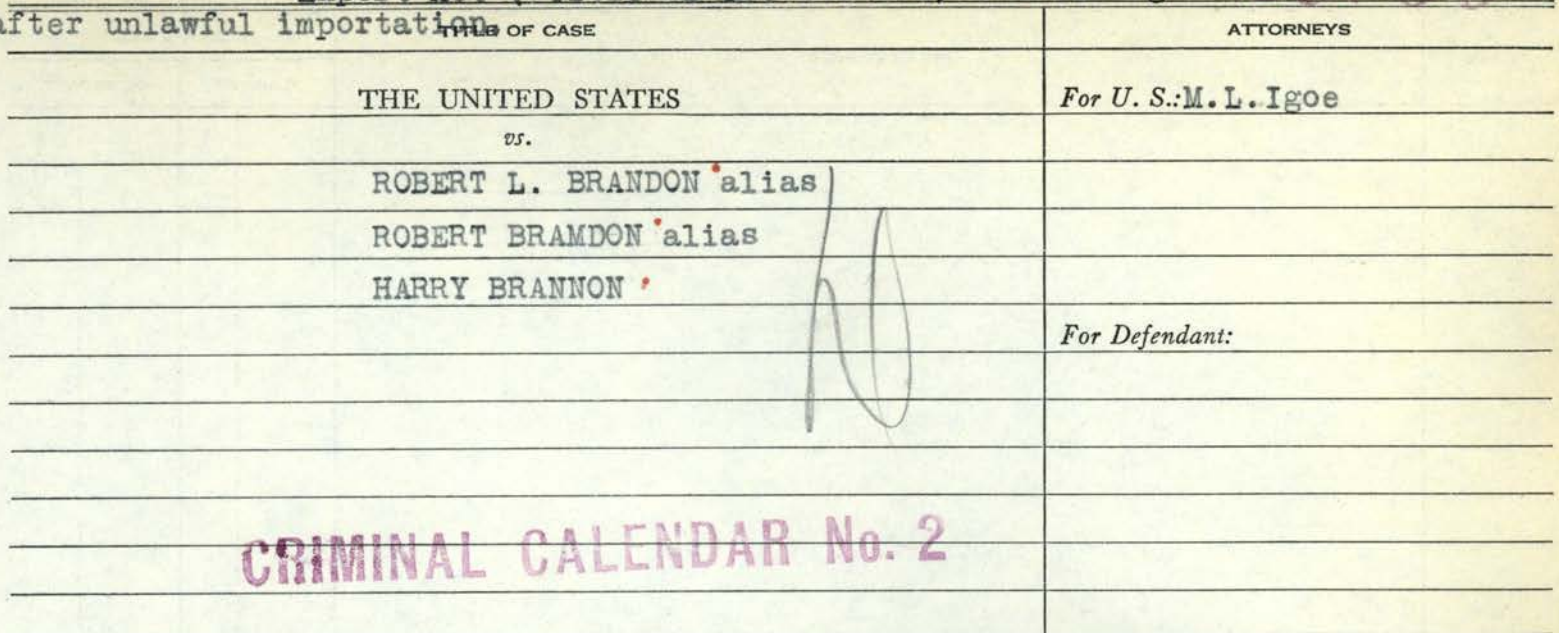 after unlawful importation.
TITLE OF CASE
ATTORNEYS
THE UNITED STATES
For U. S.: M. L. Igoe
vs.
ROBERT L. BRANDON alias
ROBERT BRAMDON alias
HARRY BRANNON
For Defendant:
CRIMINAL CALENDAR No. 2